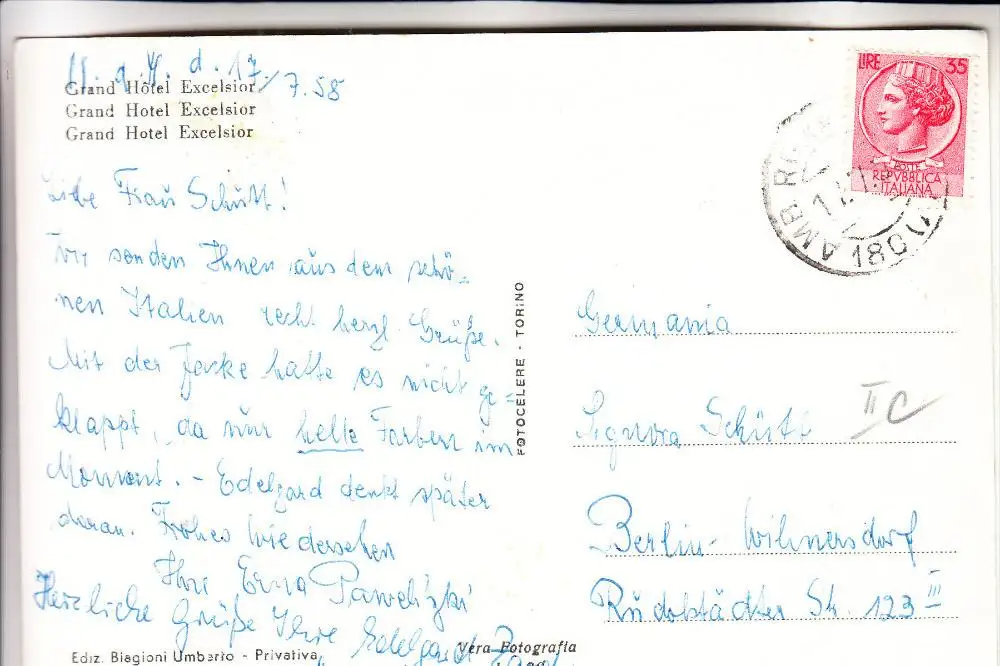 d. 17/7.58
Grand Hôtel Excelsior
Grand Hotel Excelsior
Grand Hotel Excelsior
Liebe Frau Schütt!
Wir senden Ihnen aus dem schö=
nen Italien recht herzl. Grüße.
Mit der Jacke hatte es nicht ge=
klappt, da nur helle Farben im
Moment. - Edelgard denkt später
daran. Frohes Wiedersehen
Ihre Erna
Herzliche Grüße Ihre Edelgard
Ediz. Biagioni Umberto - Privativa
Vera Fotografia
FOTOCELERE - TORINO
LIRE 35
POSTE
REPVBBLICA
ITALIANA
AMB. 180
Germania
Signora Schütt
II C
Berlin-Wilmersdorf
Rudolstädter Str. 123 III